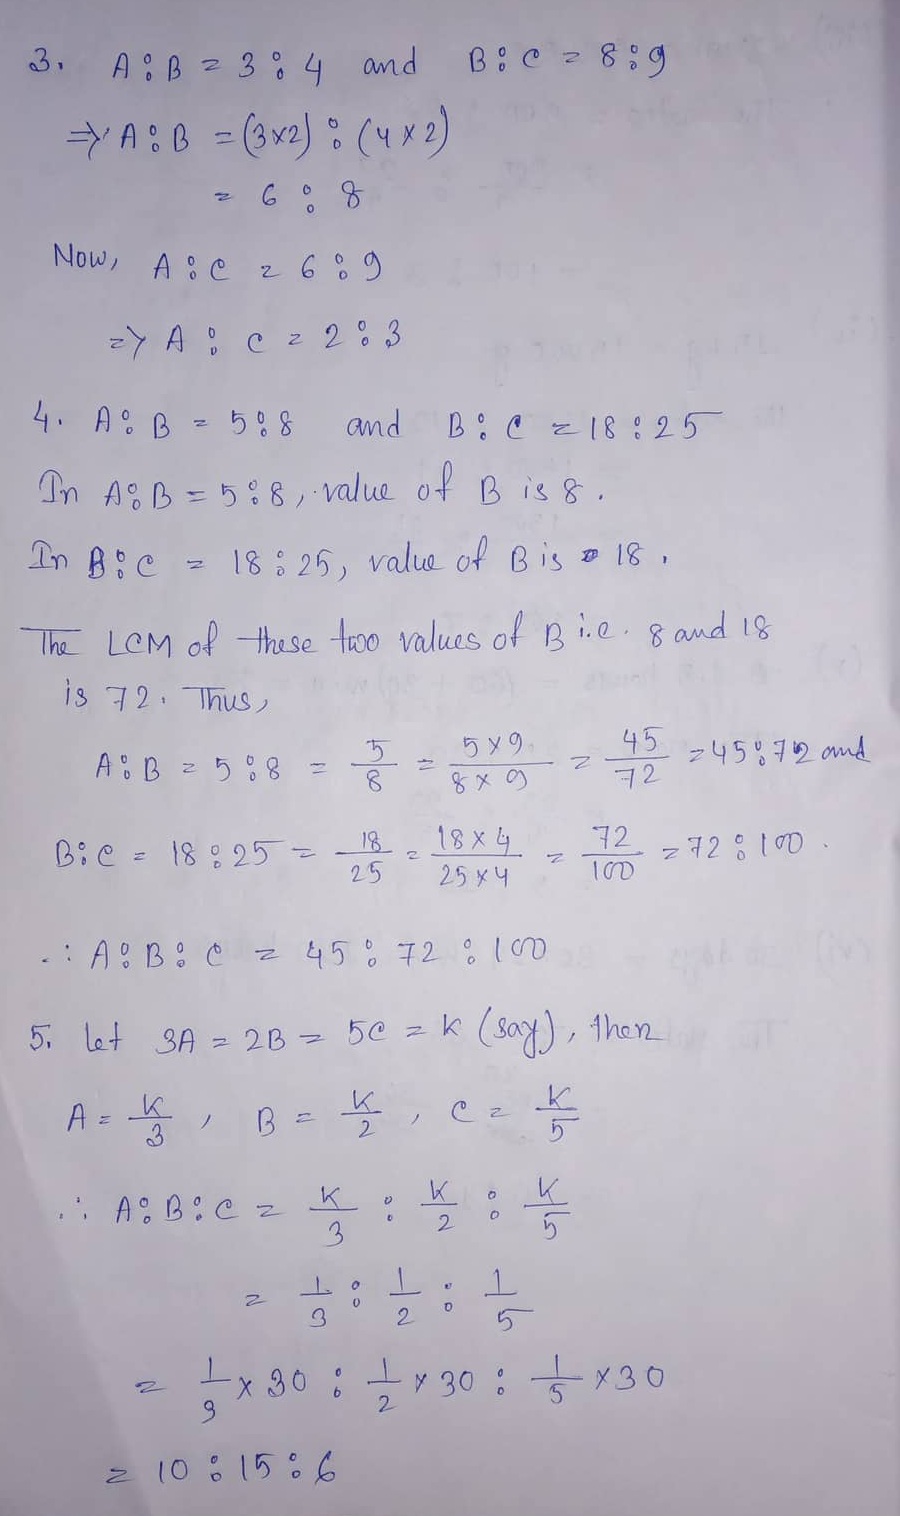 3. A:B = 3:4 and B:C = 8:9
⇒ A:B = (3×2) : (4×2)
= 6 : 8
Now, A:C = 6:9
⇒ A : C = 2:3
4. A:B = 5:8 and B:C = 18:25
In A:B = 5:8, value of B is 8.
In B:C = 18:25, value of B is 18.
The LCM of these two values of B i.e. 8 and 18
is 72. Thus,
A:B = 5:8 = 5/8 = 5×9/8×9 = 45/72 = 45:72 and
B:C = 18:25 = 18/25 = 18×4/25×4 = 72/100 = 72:100.
∴ A:B:C = 45:72:100
5. Let 3A = 2B = 5C = K (say), then
A = K/3, B = K/2, C = K/5
∴ A:B:C = K/3 : K/2 : K/5
= 1/3 : 1/2 : 1/5
= 1/3 × 30 : 1/2 × 30 : 1/5 × 30
= 10:15:6